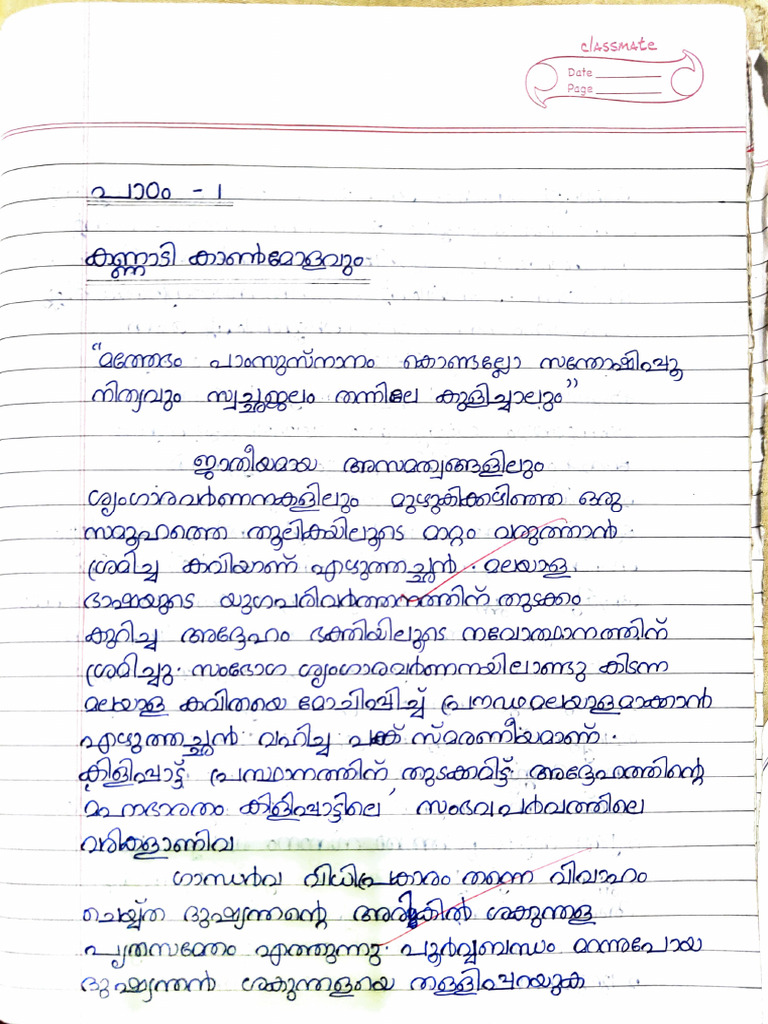 classmate
Date
Page
പാഠം - 1
കണ്ണാടി കാൺമോളവും
“മത്തേഭം പാംസുസ്നാനം കൊണ്ടല്ലോ സന്തോഷിപ്പൂ
നിത്യവും സ്വച്ഛജലം തന്നിലേ കുളിച്ചാലും”
ജാതീയമായ അസമത്വങ്ങളിലും
ശൃംഗാരവർണനകളിലും മുഴുകിക്കഴിഞ്ഞ ഒരു
സമൂഹത്തെ തൂലികയിലൂടെ മാറ്റം വരുത്താൻ
ശ്രമിച്ച കവിയാണ് എഴുത്തച്ഛൻ. മലയാള
ഭാഷയുടെ യുഗപരിവർത്തനത്തിന് തുടക്കം
കുറിച്ച അദ്ദേഹം ഭക്തിയിലൂടെ നവോത്ഥാനത്തിന്
ശ്രമിച്ചു. സംഭോഗ ശൃംഗാരവർണനയിലാണ്ടു കിടന്ന
മലയാള കവിതയെ മോചിപ്പിച്ച് പ്രൗഢമലയാളമാക്കാൻ
എഴുത്തച്ഛൻ വഹിച്ച പങ്ക് സ്മരണീയമാണ്.
കിളിപ്പാട്ട് പ്രസ്ഥാനത്തിന് തുടക്കമിട്ട അദ്ദേഹത്തിന്റെ
മഹാഭാരതം കിളിപ്പാട്ടിലെ ' സംഭവപർവത്തിലെ
വരികളാണിവ
ഗാന്ധർവ വിധിപ്രകാരം തന്നെ വിവാഹം
ചെയ്ത ദുഷ്യന്തന്റെ അരികിൽ ശകുന്തള
പുത്രസമേതം എത്തുന്നു. പൂർവ്വബന്ധം മറന്നുപോയ
ദുഷ്യന്തൻ ശകുന്തളയെ തള്ളിപ്പറയുക